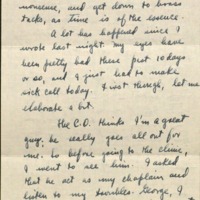 nonsense, and get down to brass
tacks, as time is of the essence.
A lot has happened since I
wrote last night. My eyes have
been pretty bad these past 10 days
or so, and I just had to make
sick call today. First though, let me
elaborate a bit.
The C.O. thinks I'm a great
guy, he really goes all out for
me. So before going to the clinic,
I went to see him. I asked
that he act as my chaplain and
listen to my troubles. George, I